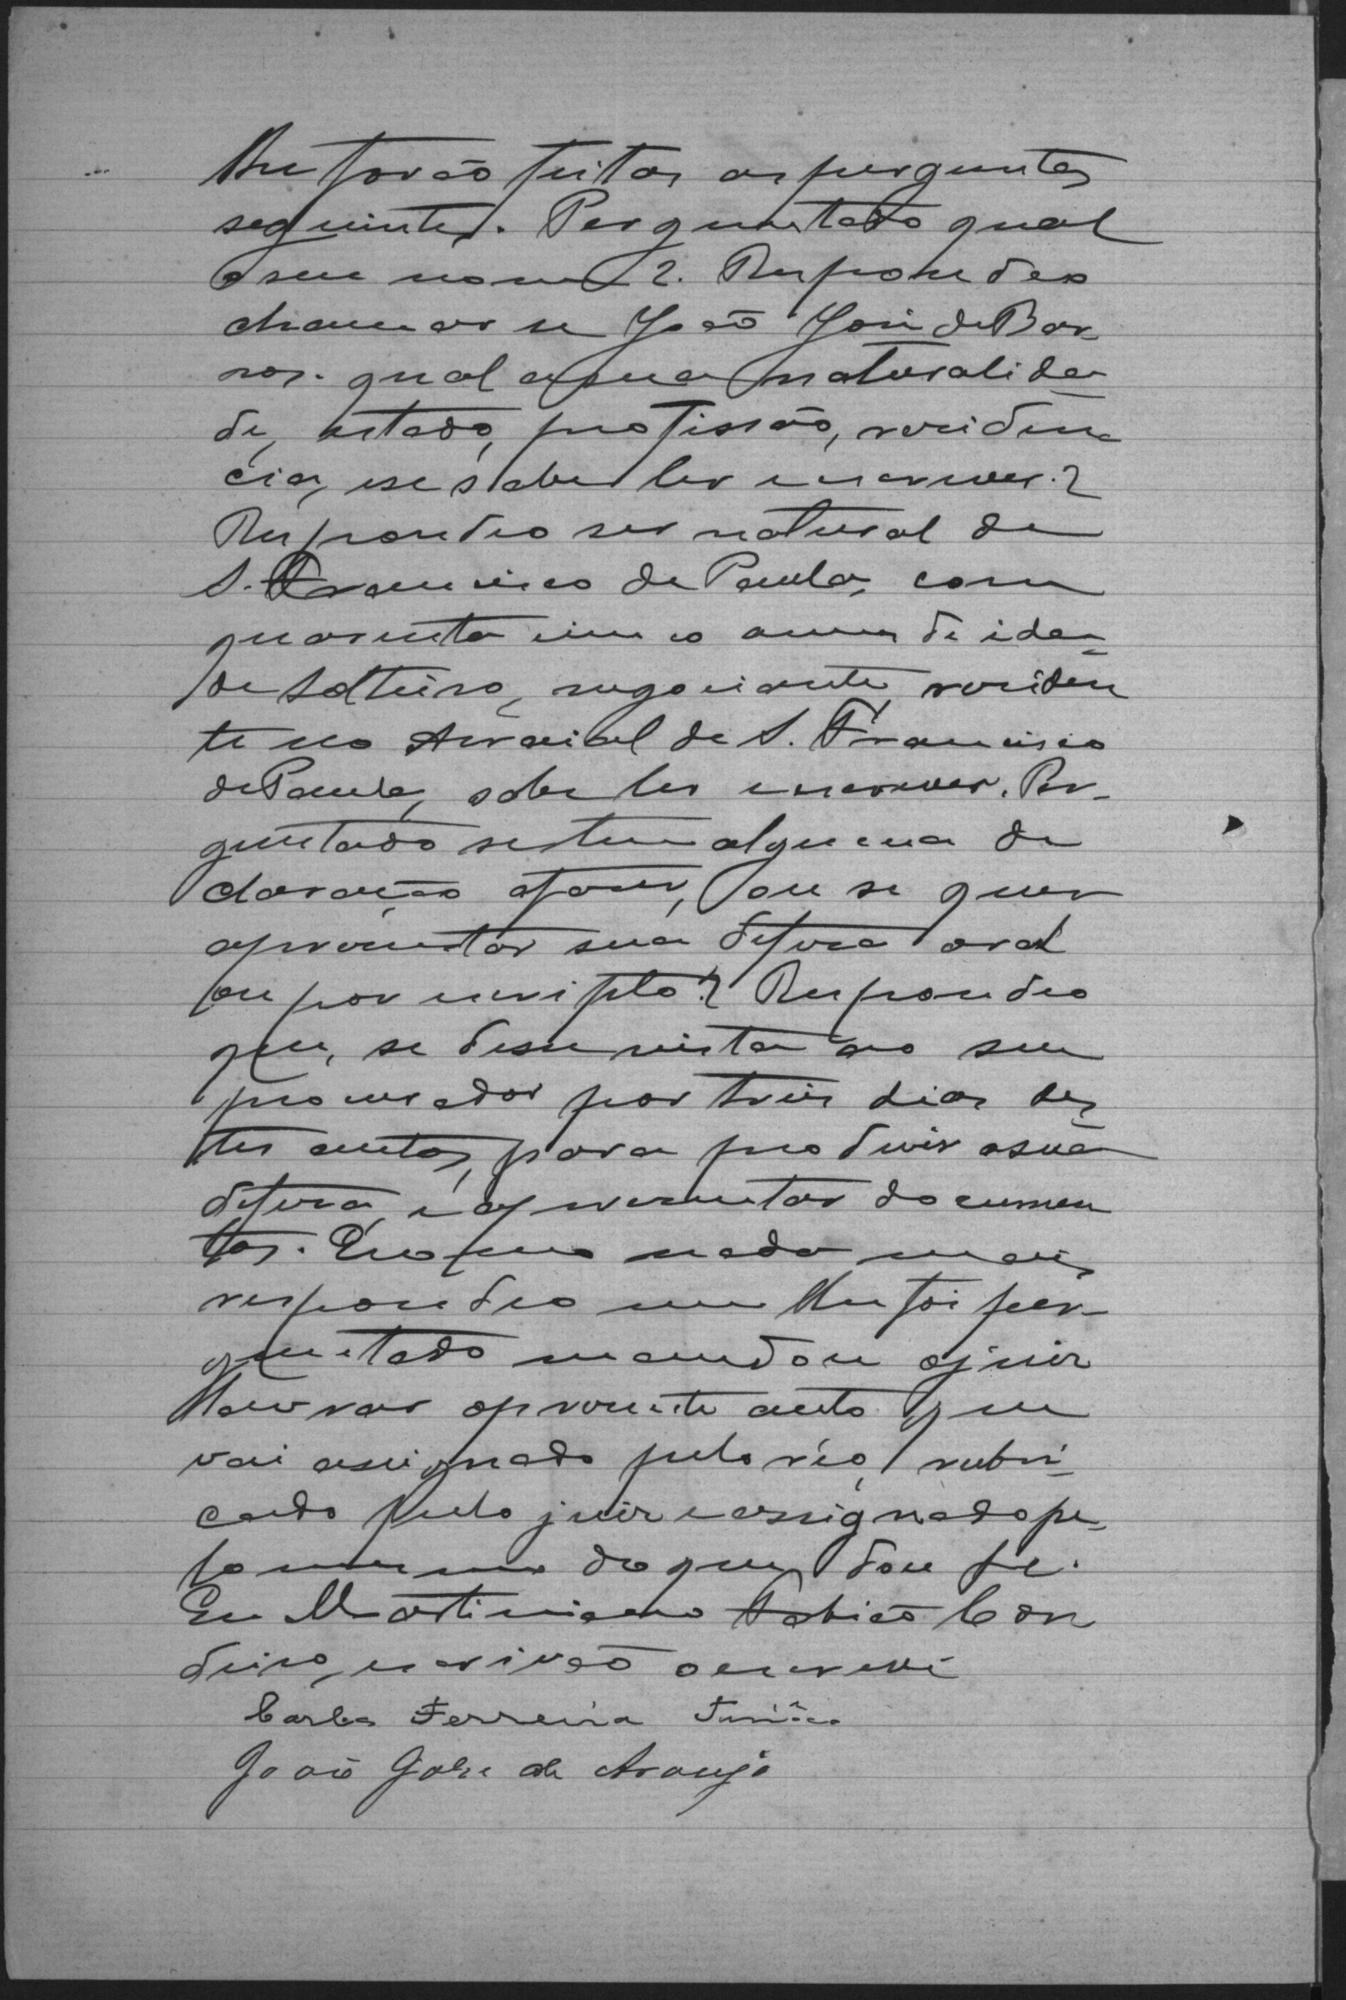 lhe forão feitas as perguntas
seguintes. Perguntado qual
o seu nome? Respondeo
chamar se João José de Bar-
ros. qual a sua naturalida-
de, estado, profissão, residen
cia, e se sabe ler e escrever?
Respondeo ser natural de
S. Francisco de Paula, com
quarenta cinco annos de ida-
de solteiro, negociante, residen
te no Arraial de S. Francisco
de Paula, sabe ler e escrever. Per-
guntado se tem alguma de
claração afazer, ou se quer
apresentar sua defesa oral
ou por escripto? Respondeo
que, se desse vista ao seu
procurador por treis dias des
tes autos, para produzir a sua
defesa, e apresentar documen
tos. E como nada mais
respondeo nem lhe foi per-
guntado mandou o juiz
lavrar o presente auto que
vai assignado pelo réo, rubri-
cado pelo juiz e assignado pe-
lo mesmo do que dou fé.
Eu Martiniano Fabião Cor
deiro, escrivão o escrevi
Carlos Ferreira
João José de Araujo